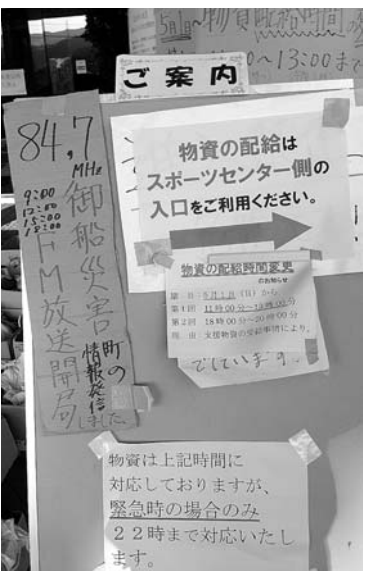 5月1日~物資配給時間の
~13:00まで
ご案内
84.7
MHz
9:00
12:00
15:00
18:00
御船災害
FM放送開局しました
町の
情報発信
物資の配給は
スポーツセンター側の
入口をご利用ください。
物資の配給時間変更
のお知らせ
期 日:5月1日(日)から
第1回 11時00分~13時00分
第2回 18時00分~20時00分
理 由:支援物資の受給事情により。
しています。
物資は上記時間に
対応しておりますが、
緊急時の場合のみ
22時まで対応いたし
ます。